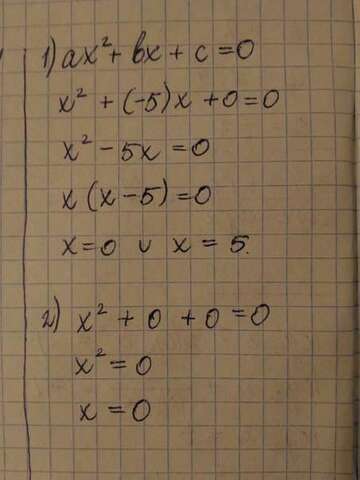 1) ax² + bx + c = 0
x² + (-5)x + 0 = 0
x² - 5x = 0
x (x - 5) = 0
x = 0 и x = 5.
2) x² + 0 + 0 = 0
x² = 0
x = 0